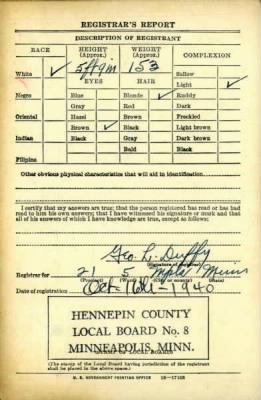 REGISTRAR'S REPORT
DESCRIPTION OF REGISTRANT
RACE HEIGHT (Approx.) WEIGHT (Approx.) COMPLEXION
White ✓ 5ft 9in 153 Sallow
EYES HAIR Light ✓
Negro Blue Blonde ✓ Ruddy
Gray Red Dark
Oriental Hazel Brown Freckled
Brown ✓ Black Light brown
Indian Black Gray Dark brown
Bald Black
Filipino
Other obvious physical characteristics that will aid in identification
I certify that my answers are true; that the person registered has read or has had
read to him his own answers; that I have witnessed his signature or mark and that
all of his answers of which I have knowledge are true, except as follows:
Geo. L. Duffy
(Signature of registrar)
Registrar for 21 5 Mpls Minn
(Precinct) (Ward)
Date of registration Oct. 16th-1940
HENNEPIN COUNTY
LOCAL BOARD No. 8
MINNEAPOLIS, MINN.
(STAMP OF LOCAL BOARD)
(The stamp of the Local Board having jurisdiction of the registrant
shall be placed in the above space.)
U. S. GOVERNMENT PRINTING OFFICE 16-17105